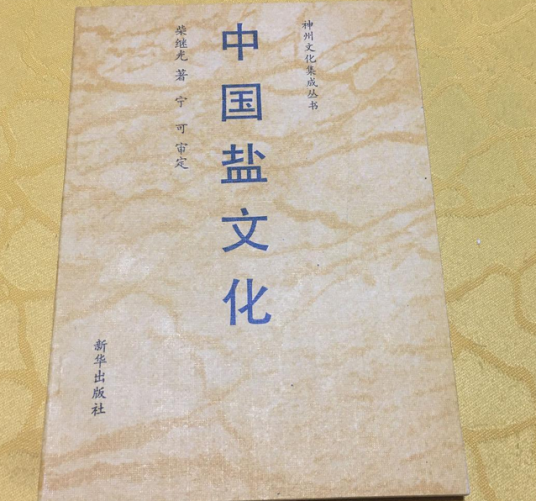 神州文化集成丛书
中国盐文化
柴继光 著 宁 可 审定
新华出版社